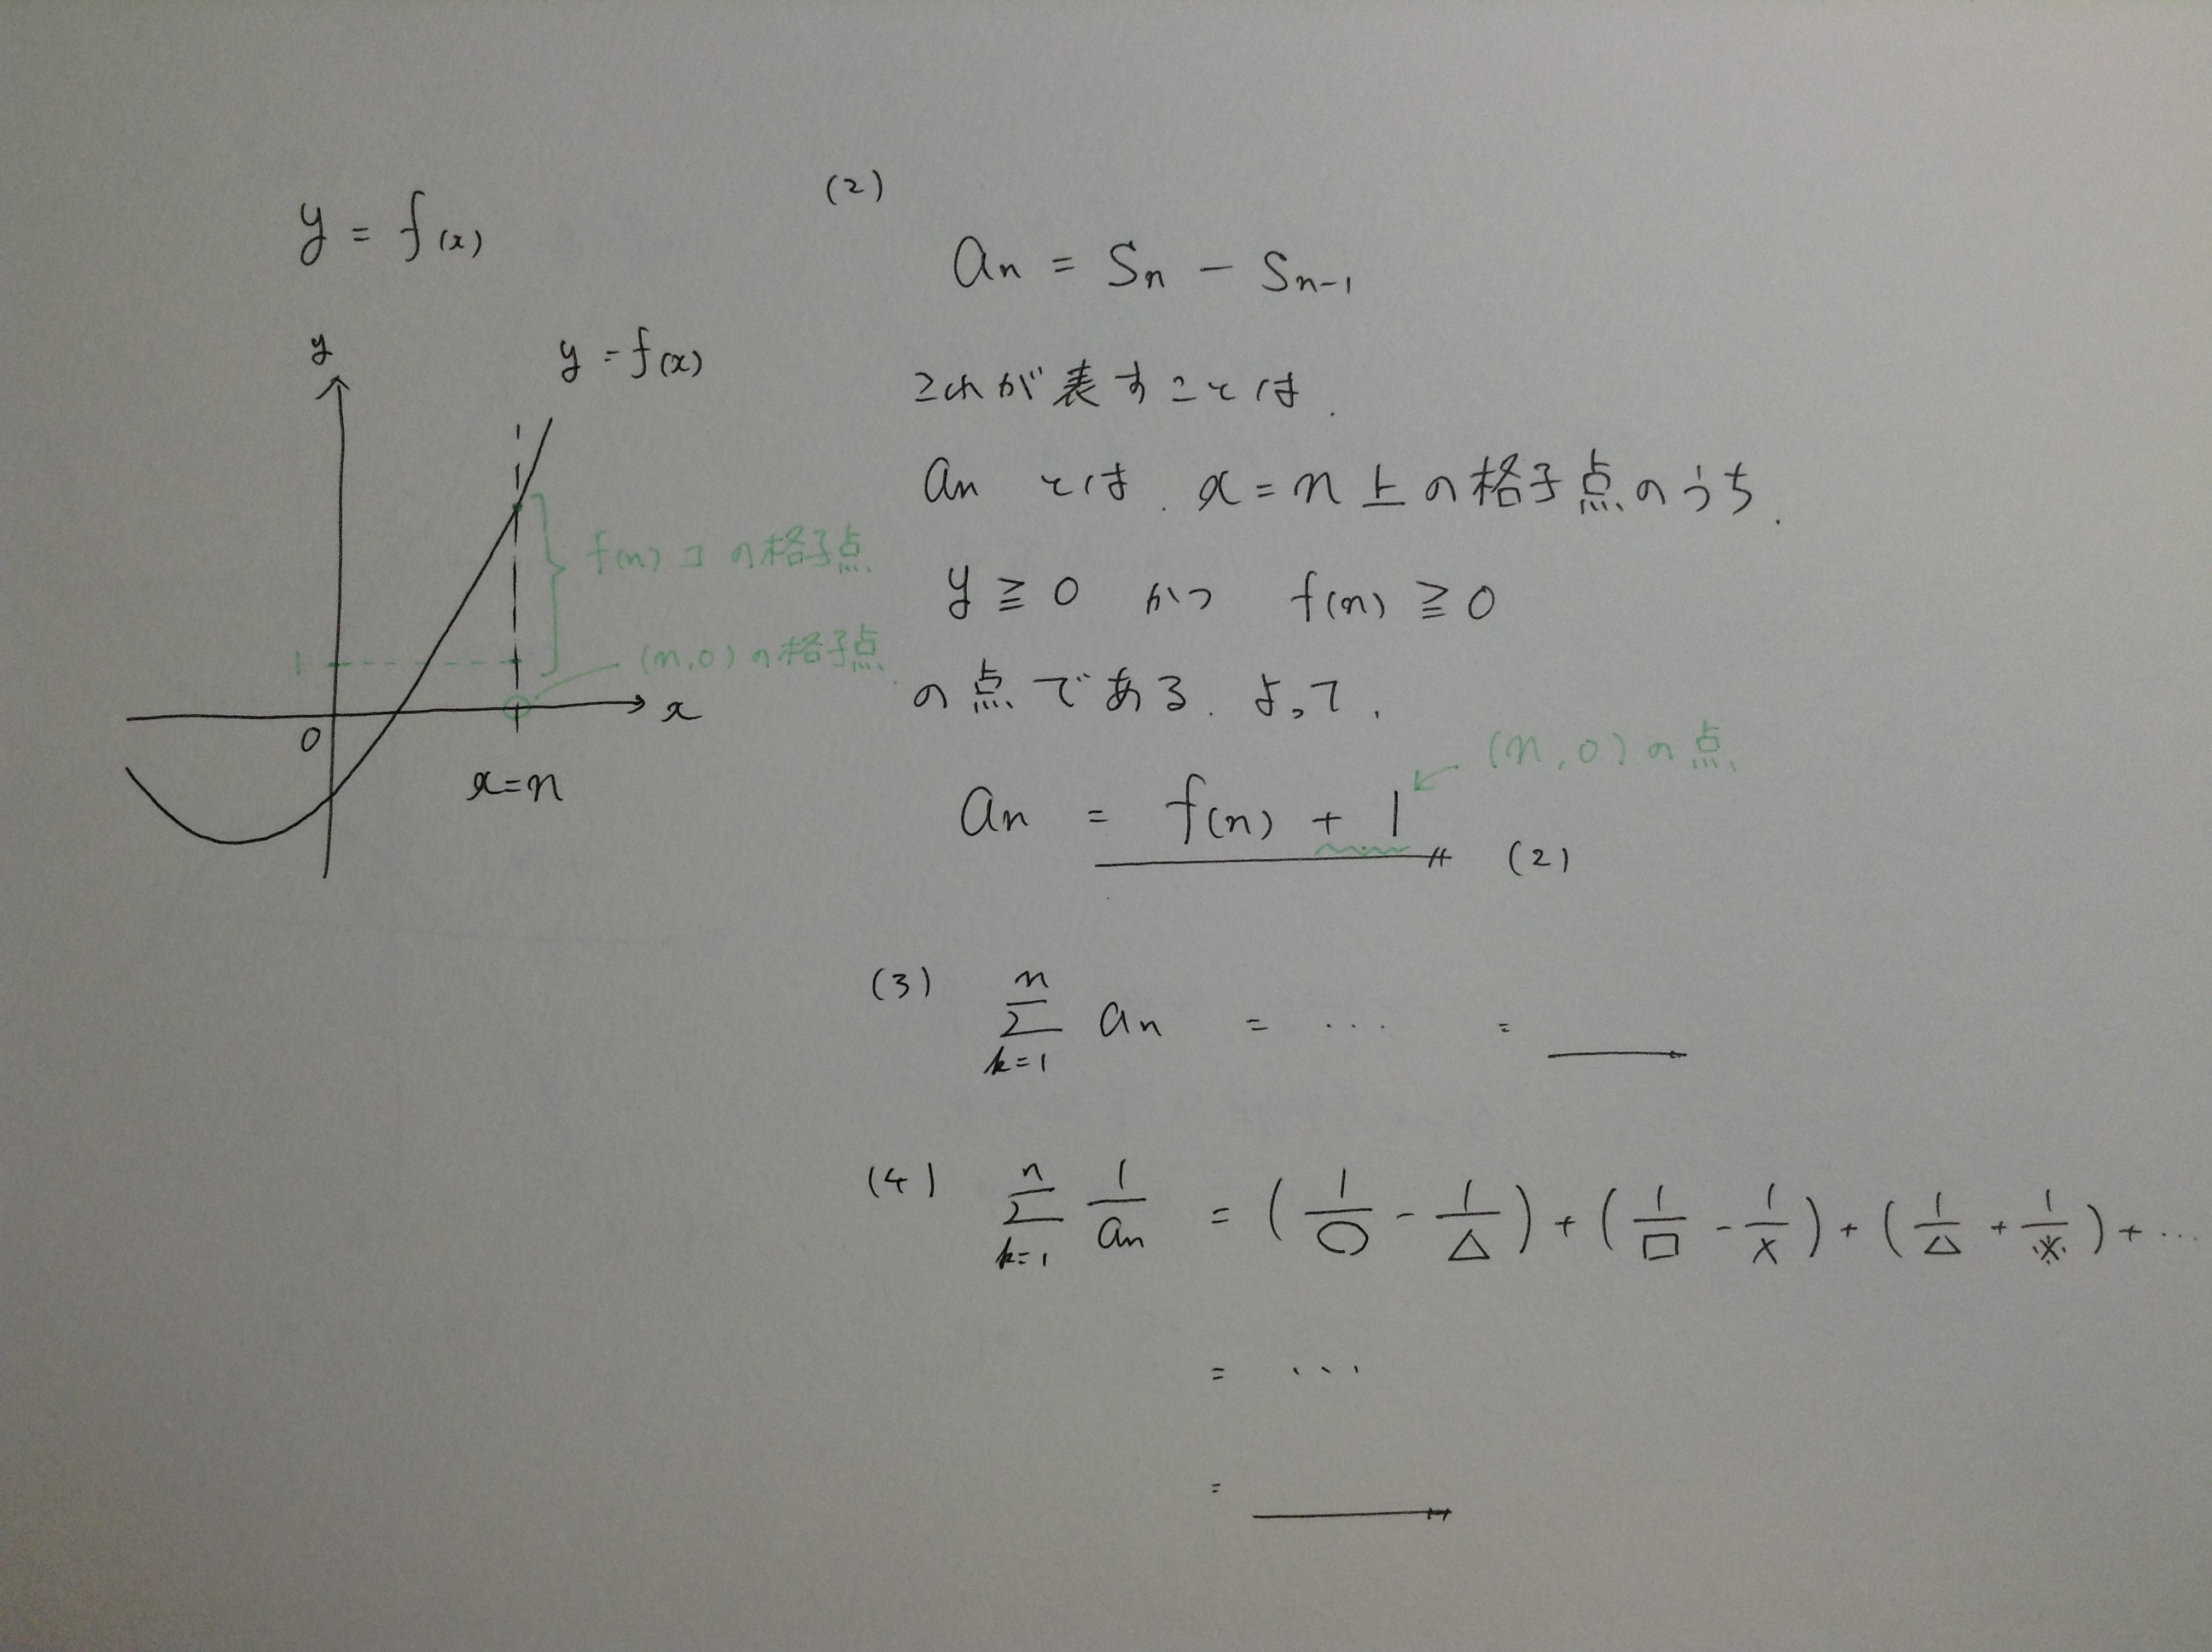 y = f(x)
y
y = f(x)
f(n) コ の格子点
1
(n,0) の格子点
0
x
x=n
(2)
an = Sn - Sn-1
これが表すことは.
an とは. x=n上の格子点のうち.
y ≧ 0 かつ f(n) ≧ 0
の点である. よって.
(n,0) の点
an = f(n) + 1 (2)
(3) n Σ k=1 an = ... =
(4) n Σ k=1 1/an = (1/○ - 1/△) + (1/□ - 1/×) + (1/△ + 1/※) + ...
= ...
=